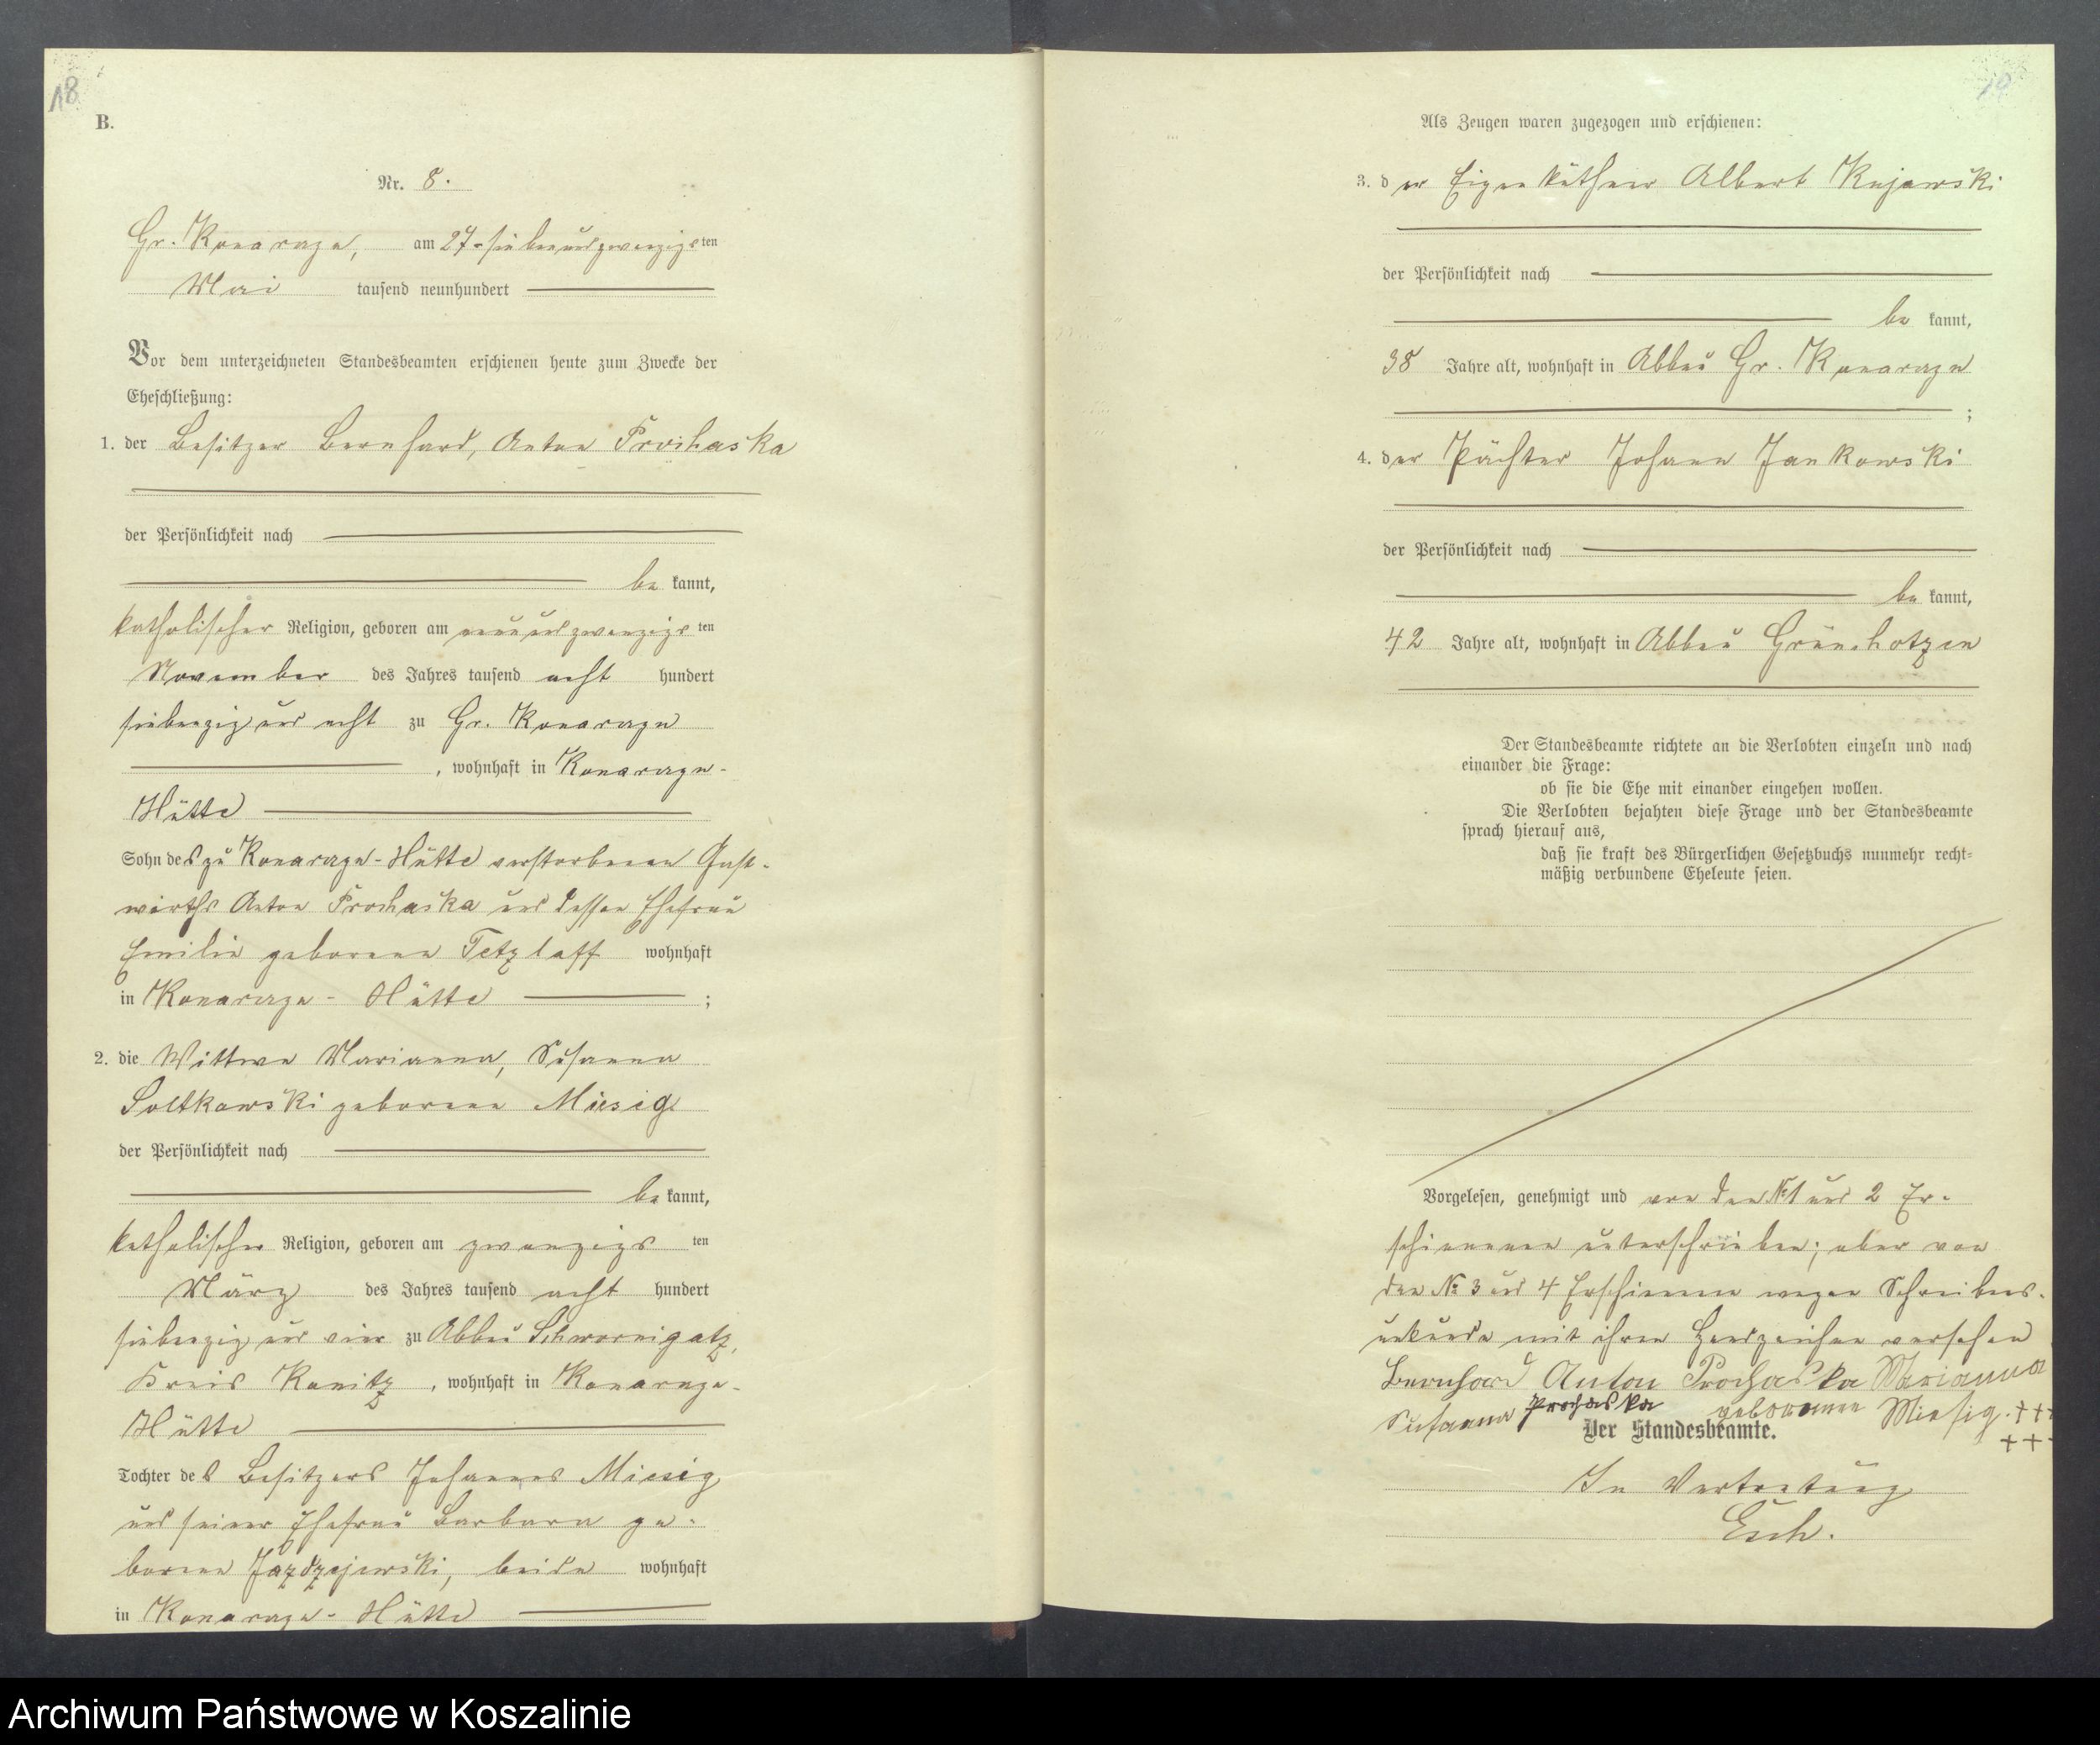 18
B.
Nr. 8.
Gr. Konarczyn, am 27-siebenundzwanzigsten
Mai tausend neunhundert
Vor dem unterzeichneten Standesbeamten erschienen heute zum Zwecke der
Eheschließung:
1. der Besitzer Bernhard, Anton Prochaska
der Persönlichkeit nach
bekannt,
katholischer Religion, geboren am neunundzwanzigsten
November des Jahres tausend acht hundert
siebenzig und acht zu Gr. Konarczyn
, wohnhaft in Konarczyn-
Hütte
Sohn des zu Konarczyn-Hütte verstorbenen Gast-
wirths Anton Prochaska und dessen Ehefrau
Emilie geborene Tetzlaff wohnhaft
in Konarczyn-Hütte ;
2. die Wittwe Marianna, Susanna
Soltkowski geborene Miesig
der Persönlichkeit nach
bekannt,
katholischer Religion, geboren am zwanzigsten
März des Jahres tausend acht hundert
siebenzig und vier zu Abbau Schwornigatz,
Kreis Konitz, wohnhaft in Konarczyn-
Hütte
Tochter des Besitzers Johannes Miesig
und seiner Ehefrau Barbara ge-
borene Jazdzejewski, beide wohnhaft
in Konarczyn-Hütte
Als Zeugen waren zugezogen und erschienen:
3. der Eigenkäthner Albert Kujawski
der Persönlichkeit nach
bekannt,
38 Jahre alt, wohnhaft in Abbau Gr. Konarczyn
;
4. der Pächter Johann Jankowski
der Persönlichkeit nach
bekannt,
42 Jahre alt, wohnhaft in Abbau Grünchotzen
Der Standesbeamte richtete an die Verlobten einzeln und nach
einander die Frage:
ob sie die Ehe mit einander eingehen wollen.
Die Verlobten bejahten diese Frage und der Standesbeamte
sprach hierauf aus,
daß sie kraft des Bürgerlichen Gesetzbuchs nunmehr recht=
mäßig verbundene Eheleute seien.
Vorgelesen, genehmigt und von den № 1 und 2 Er-
schienenen unterschrieben; aber von
den № 3 und 4 Erschienenen wegen Schreibens-
unkunde mit ihren Handzeichen versehen
Bernhard Anton Prochaska Marianna
Susanna Prochaska geborenen Miesig. +++
+++
Der Standesbeamte.
In Vertretung
Esch.
Archiwum Państwowe w Koszalinie